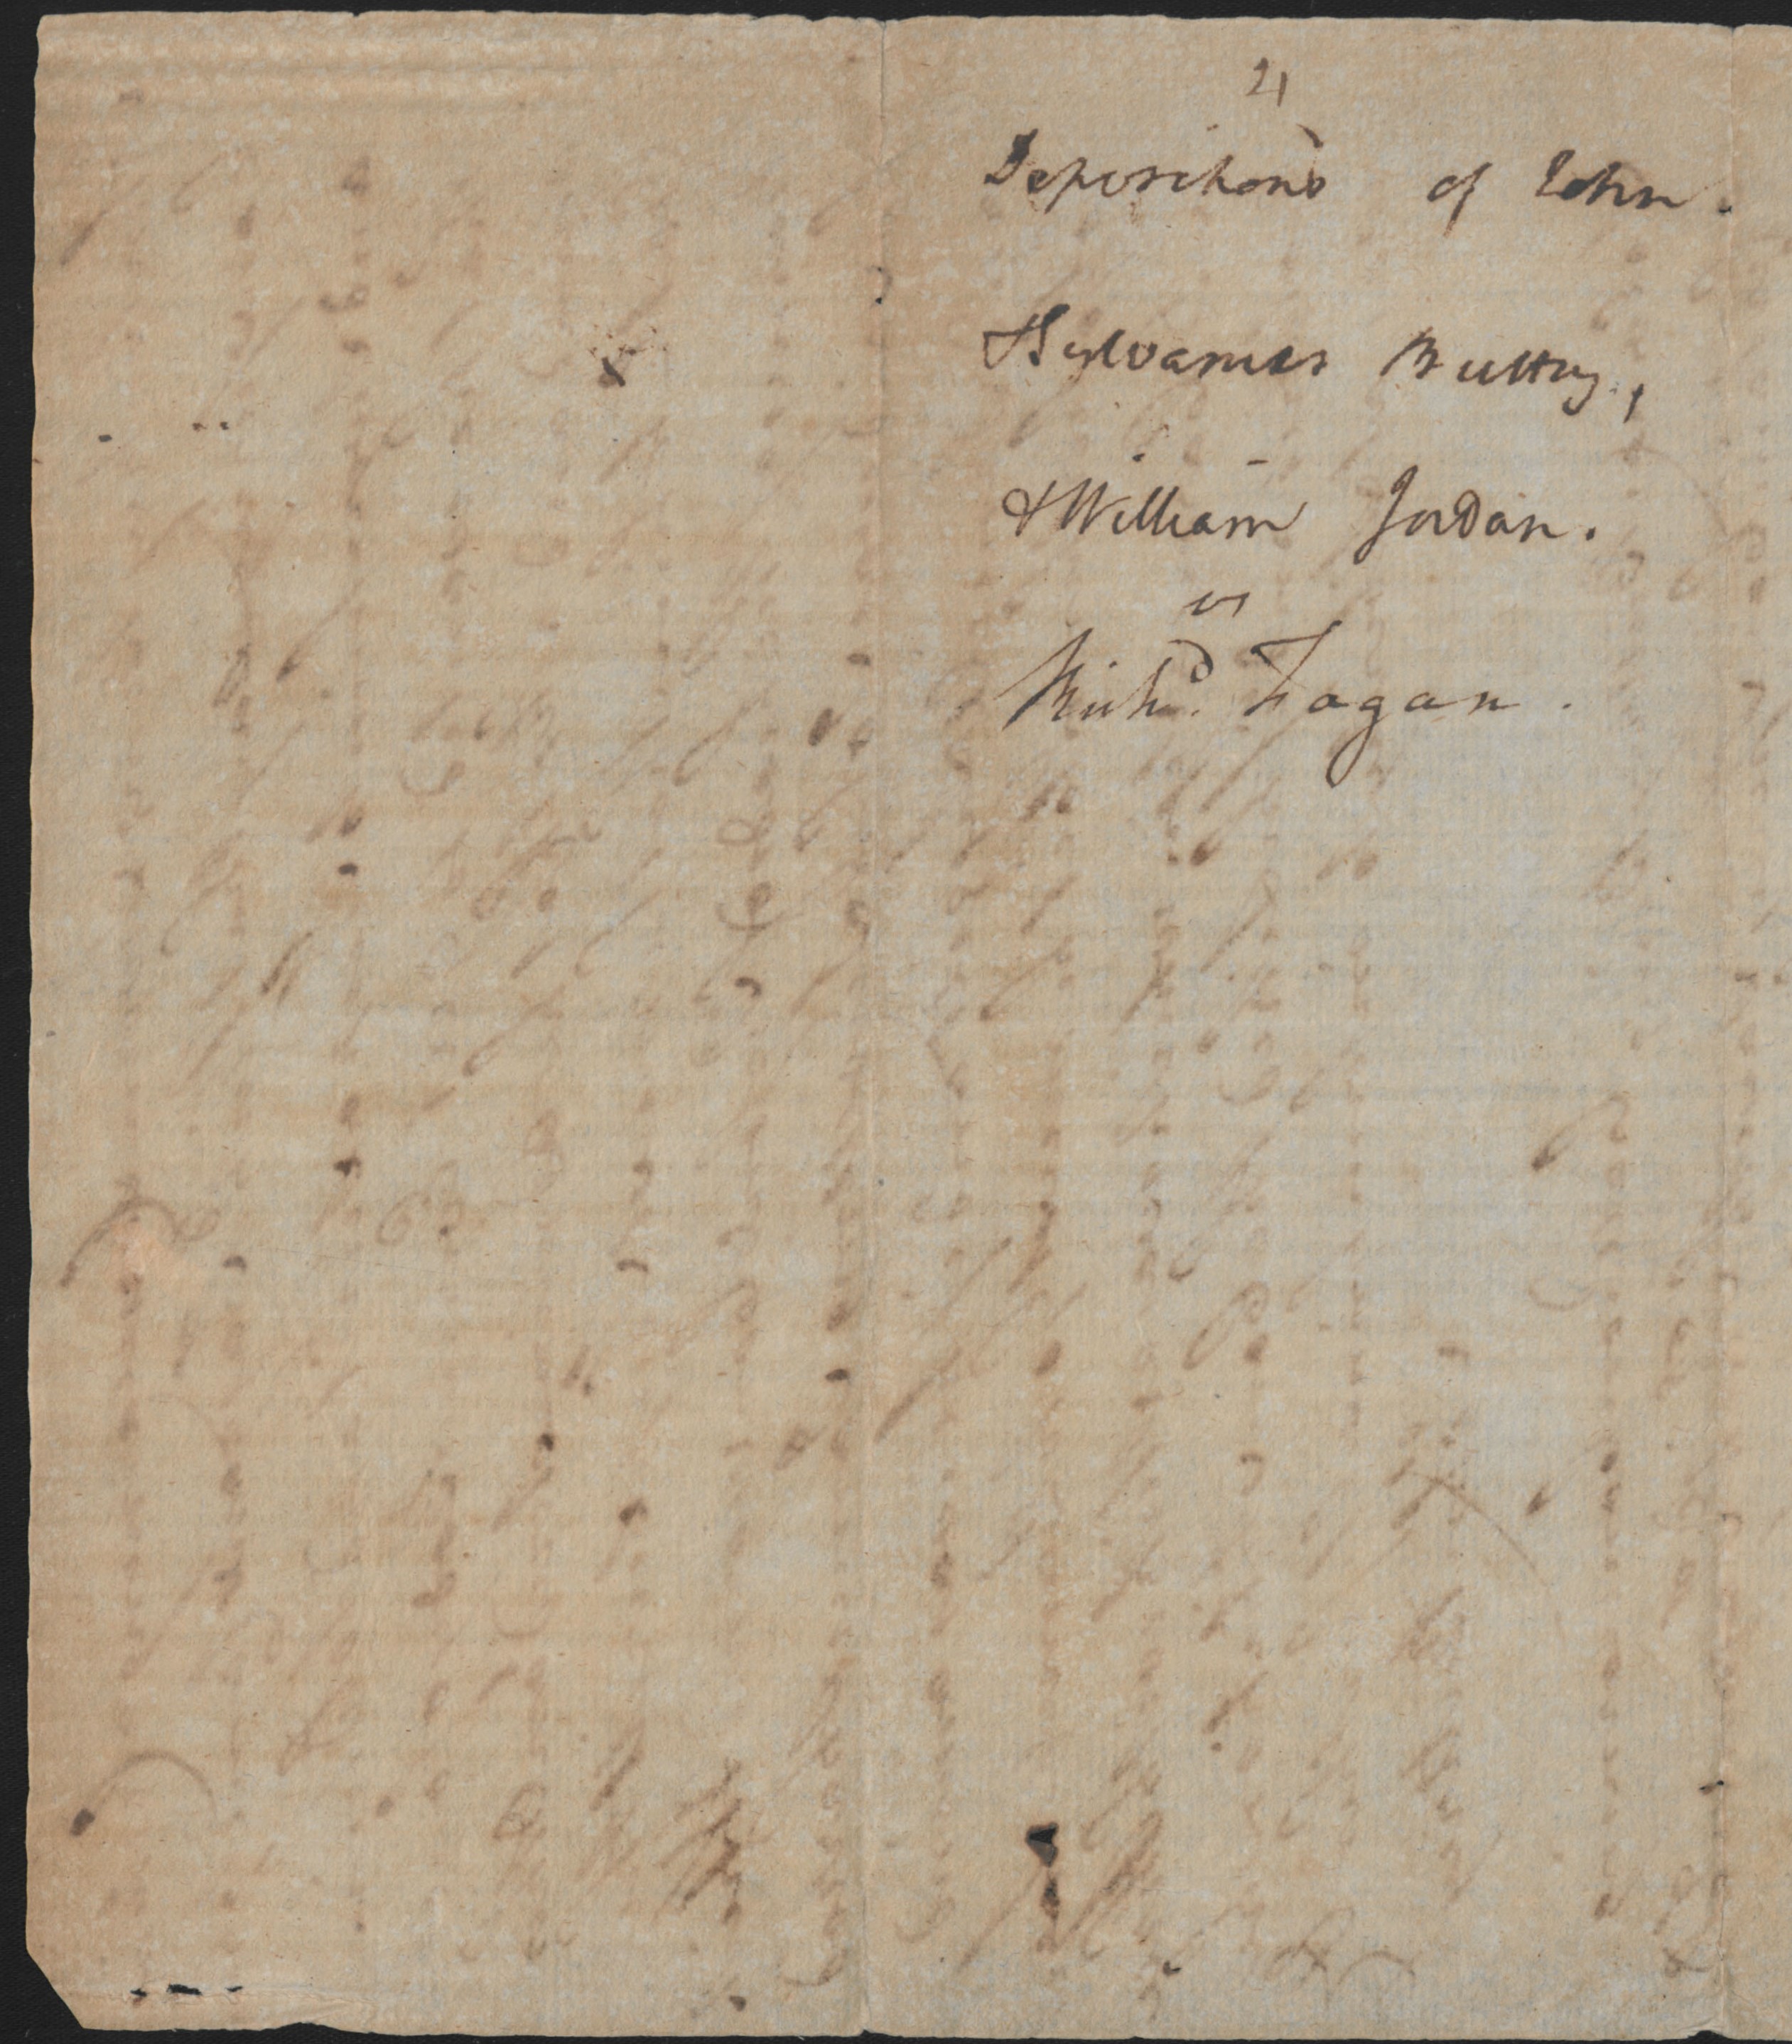 21
Depositions of John
& Sylvanus Buttry,
& William Jordan.
vs
Richd. Fagan.